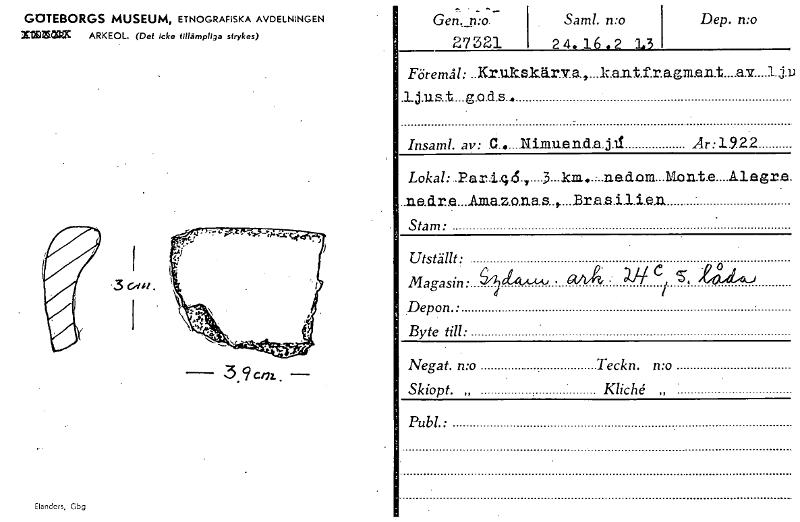 GÖTEBORGS MUSEUM, ETNOGRAFISKA AVDELNINGEN
ARKEOL. (Det icke tillämpliga strykes)
3 cm.
3,9 cm.
Elanders, Gbg
Gen. n:o Saml. n:o Dep. n:o
27321 24.16.2 13
Föremål: Krukskärva, kantfragment av lju
ljust gods.
Insaml. av: C. Nimuendajú År: 1922
Lokal: Pariçó, 3 km. nedom Monte Alegre
nedre Amazonas, Brasilien
Stam:
Utställt:
Magasin: Sydam. ark. 24 C, 5. låda
Depon.:
Byte till:
Negat. n:o Teckn. n:o
Skiopt. „ Kliché „
Publ.: